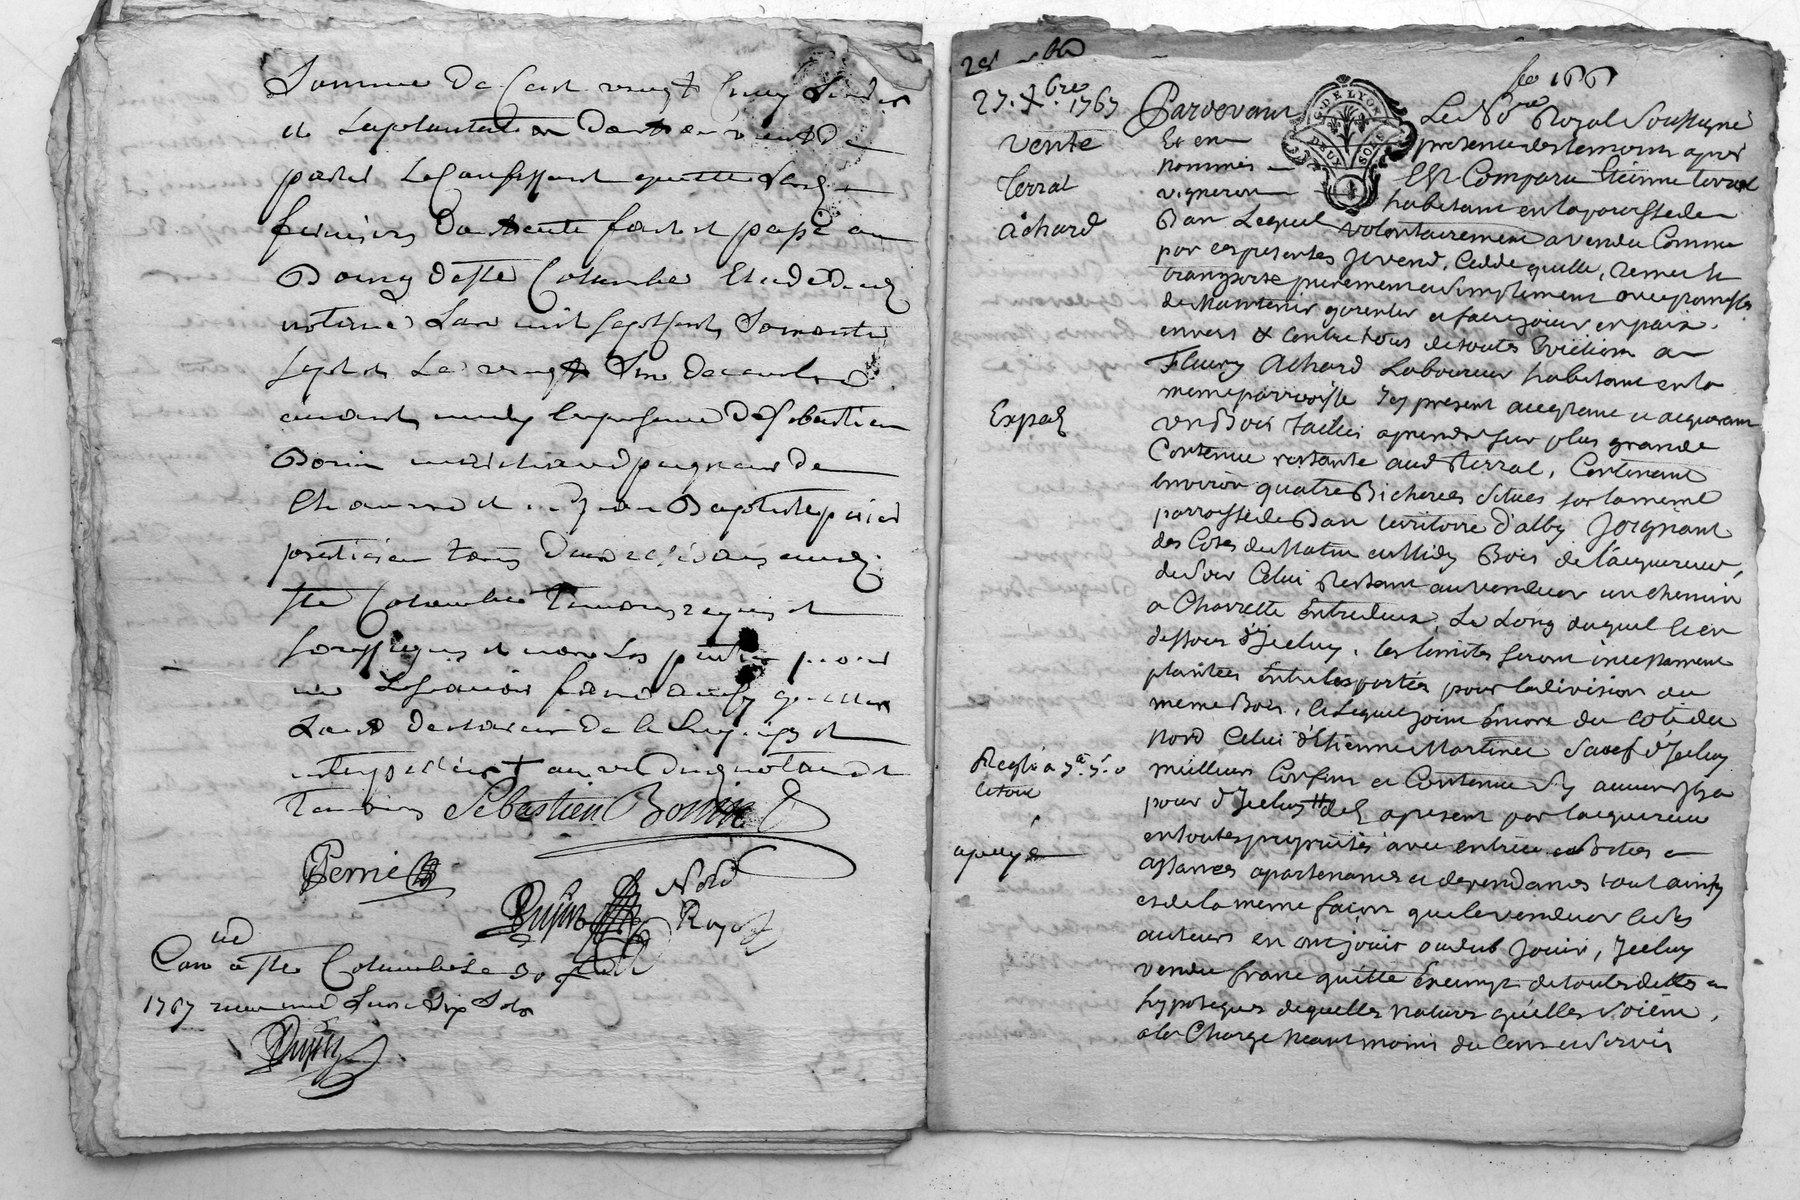 Somme de Cent vingt Cinq Livres
et
partie Le Confessant quitte
fermiers dont acte fait et passé au
Bourg de Ste Colombe Etude dud
notaire Lan mil sept cent Soixante
sept et Le vingt Six decembre
avant midy en presence de Sebastien
Bonin marchand peigneur de
Chanvre et de Jean Baptiste perier
praticien tous deux residans aud
Ste Colombe temoins requis et
soussignes et non les parties pour
ne Le scavoir faire ainsy quelles
Lont declaré de ce Enquis et
interpellés
temoins Sebastien Bonin
Perrie
Dujas Nore
Royal
Con a Ste Colombe Le 30 xbre
1767 receu une Livre Six Sols
Dujas
27. Xbre. 1767
vente
terrat
achard
Exped
apayé
fo 166
G. DE LYON
DEUX SOLS
Pardevant Le Nore Royal Soussigné
Et en presence des temoins apres
nommés Est Comparu Etienne terrat
vigneron habitant en la paroisse de
Dan Lequel volontairement a vendu Comme
par ces presentes Il vend, Cedde quitte, remet et
transporte purement et simplement avec promesse
de Maintenir garentir et faire jouir en paix
envers & contre tous de toutes Evictions a
Fleury Achard Laboureur habitant en la
meme parroisse Icy present acceptant et acquerant
un Bois taillis a prendre sur plus grande
Contenue restante aud terrat, Contenant
Environ quatre Bicherees Situés sur la meme
parroisse de Dan territoire d'alby Joignant
des Cotes du Matin et Midy Bois de l'acquereur,
du Soir Celui Restant au vendeur un chemin
a Charrette Entredeux, Le Long duquel Et en
dessous d'Jceluy, les limites seront incessament
plantées Entre les parties pour la division du
meme Bois, et Lequel joint Encore du coté du
Nord Celui d'Etienne Martinee Sauf d'Jceluy
meilleurs Confins et Contenue Sy aucun Il y a
pour d'Jceluy apresent par l'acquereur
en toutes proprietés avec entrées Sorties et
aisances apartenances et dependances tout ainsy
et de la meme façon que le vendeur et Ses
auteurs en ont jouit ou dub jouir, Jceluy
vendu franc quitte Exempt de toutes dettes et
hypoteques de quelles natures qu'elles Soient,
a la Charge neantmoins du Cens et Servis